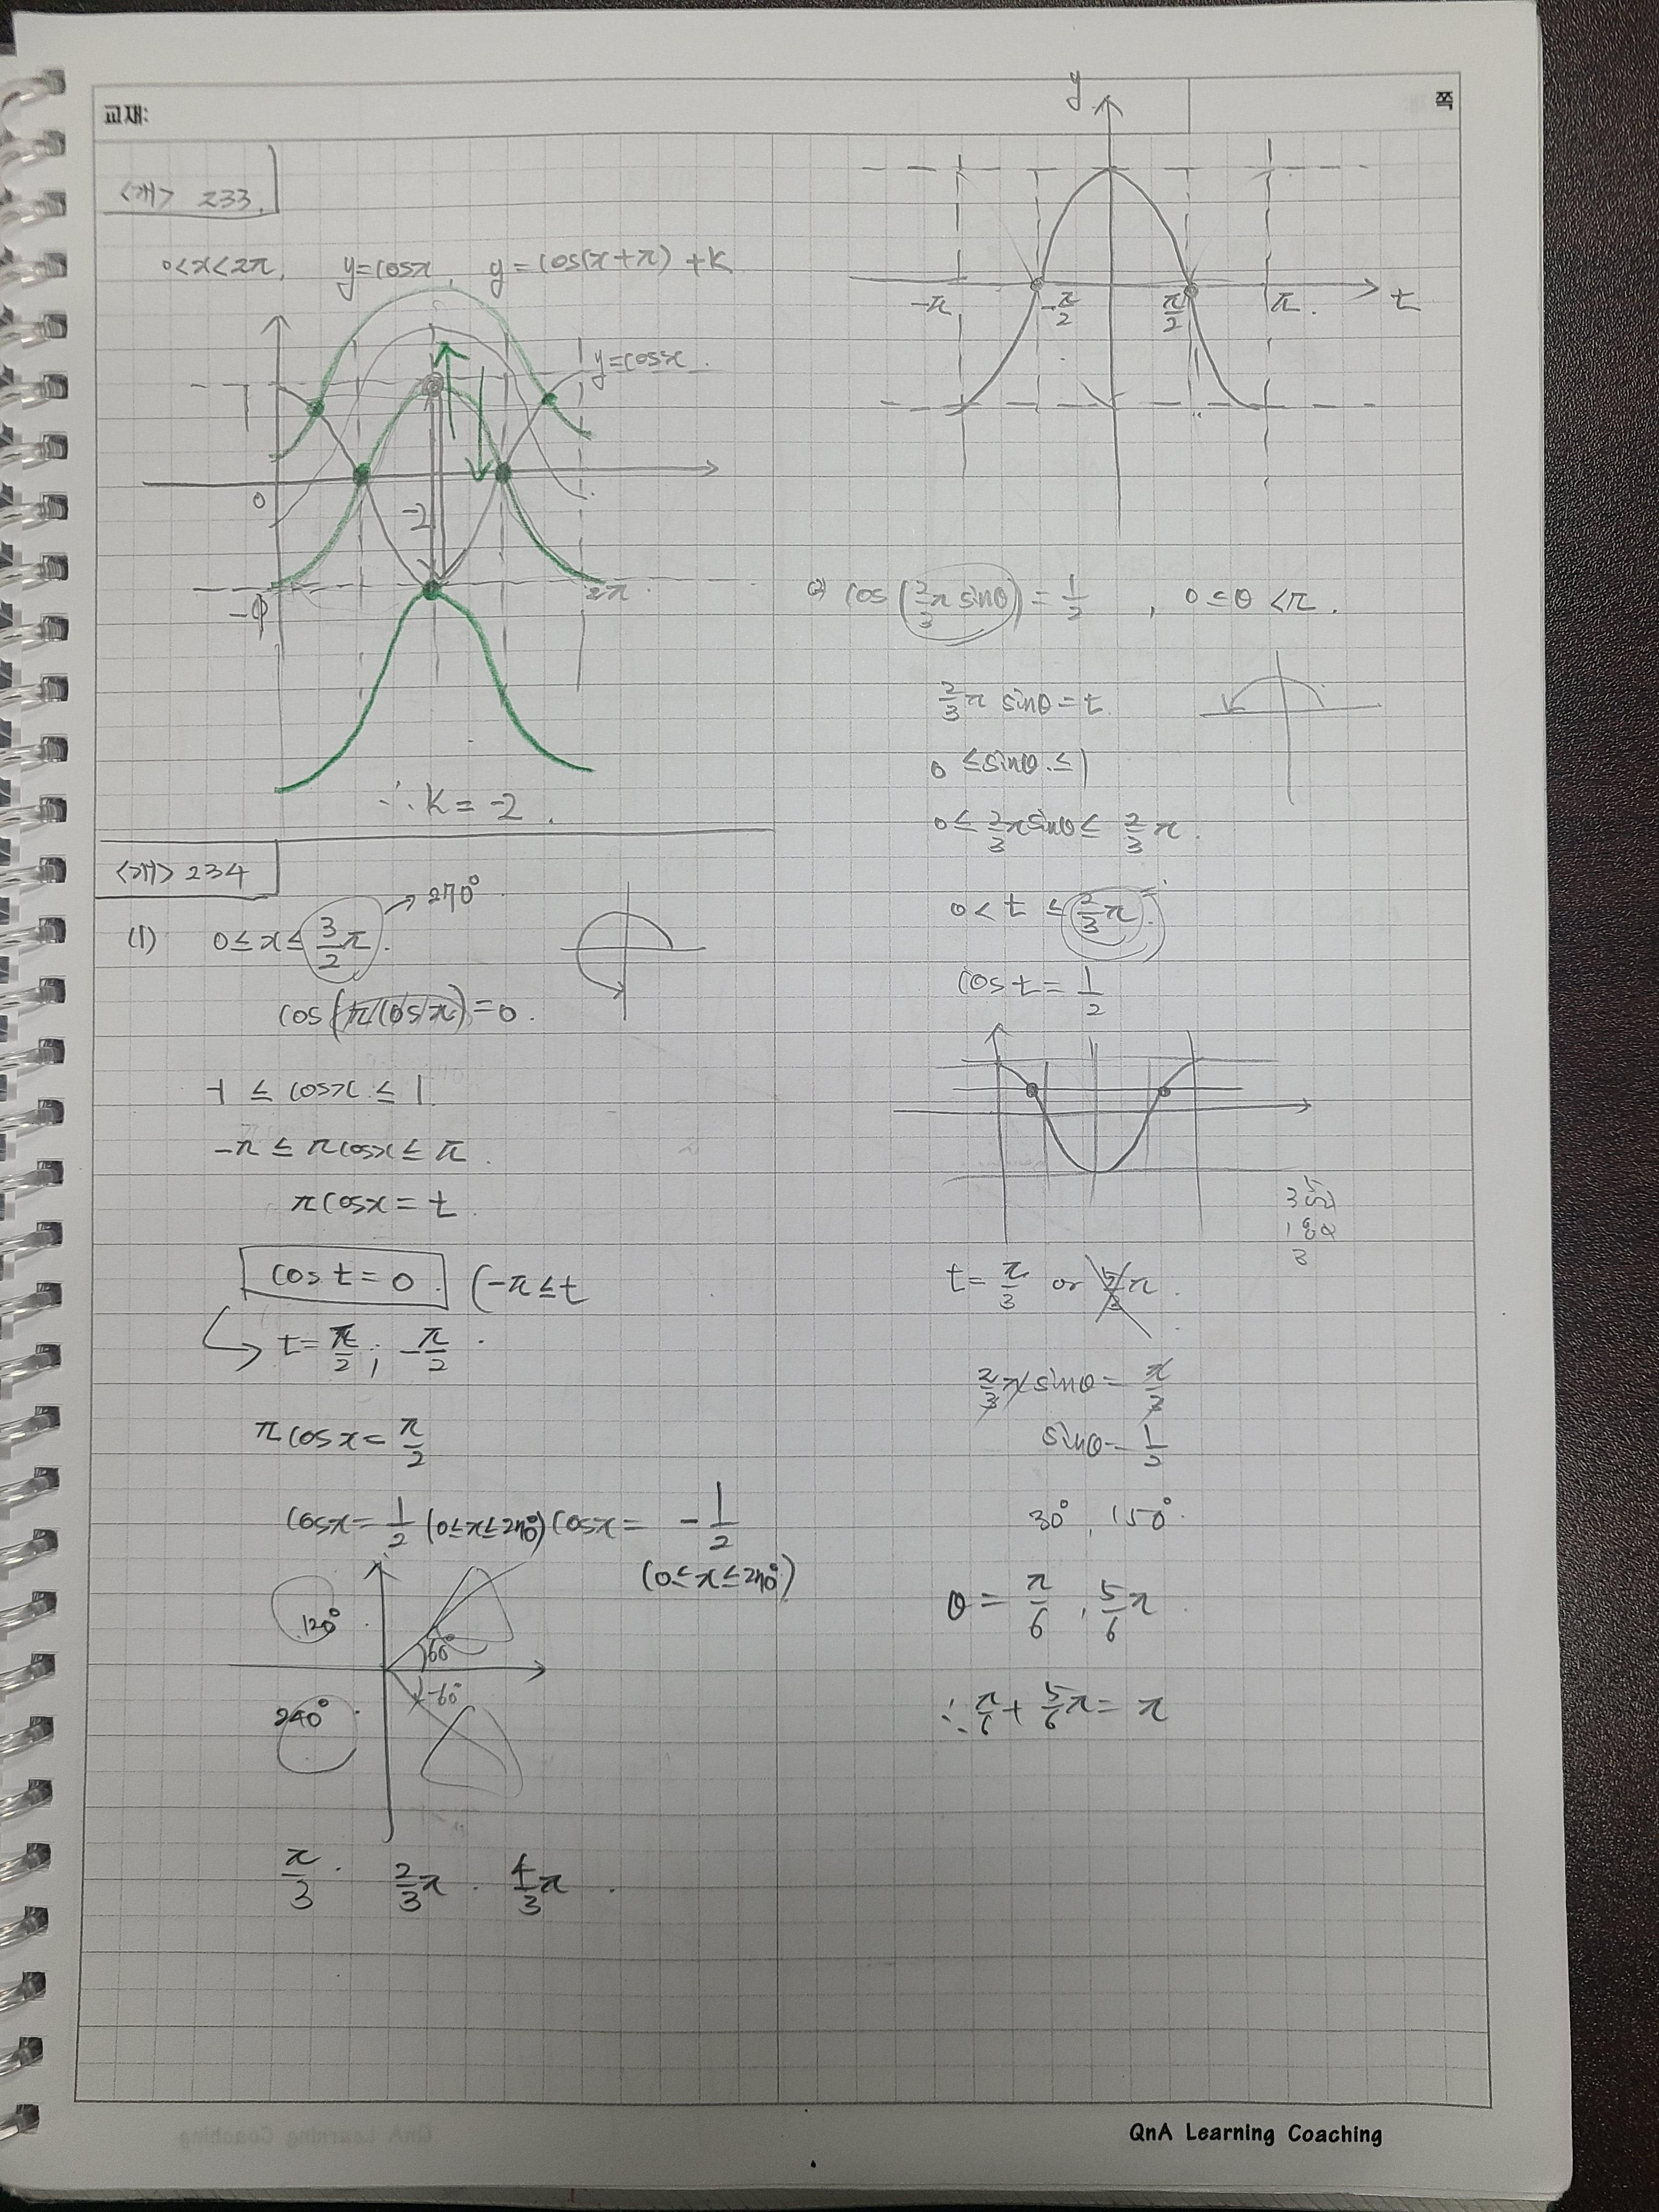 교재:
쪽
<개> 233.
0<x<2π, y=cosx, y=cos(x+π)+k
y=cosx.
1
0
-2
-1
2π.
∴ k = -2.
<개> 234
(1) 0≤x≤3/2π. → 270°
cos(πcosx)=0.
-1 ≤ cosx ≤ 1
-π ≤ πcosx ≤ π.
πcosx = t
cos t = 0 (-π≤t
t= π/2, -π/2.
πcosx = π/2
cosx = 1/2 (0≤x≤270°) cosx = -1/2
(0≤x≤270°)
120°
60°
-60°
240°
π/3. 2/3π. 4/3π.
y
-π -π/2 π/2 π. t
(2) cos(2/3π sinθ) = 1/2, 0≤θ<π.
2/3π sinθ = t.
0 ≤ sinθ ≤ 1
0 ≤ 2/3π sinθ ≤ 2/3π.
0 < t ≤ 2/3π.
cos t = 1/2
t = π/3 or 5/3π.
2/3π sinθ = π/3
sinθ = 1/2
30°, 150°.
θ = π/6, 5/6π.
∴ π/6 + 5/6π = π
QnA Learning Coaching